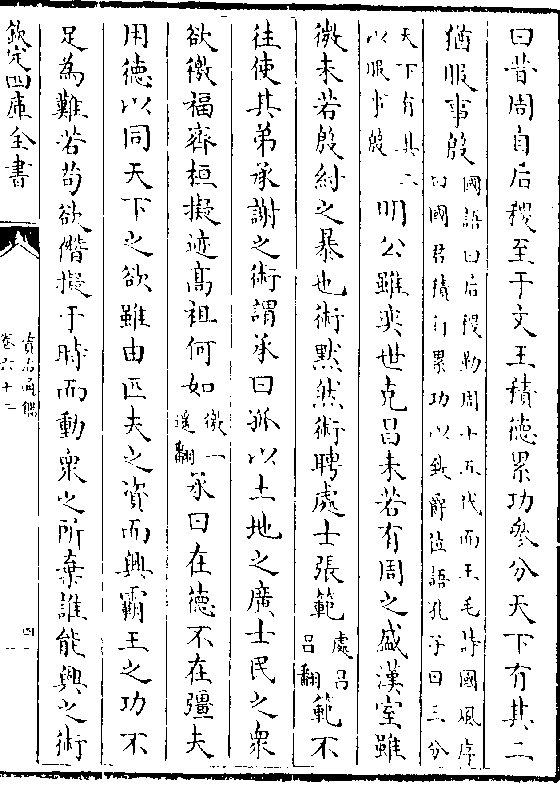 曰昔周自后稷至于文王積德累功參分天下有其二
猶服事殷國語曰后稷勤周十五代而王毛詩國風序曰國君積行累功以致爵位語孔子曰三分
天下有其二以服事殷明公雖奕世克昌未若有周之盛漢室雖
微未若殷紂之暴也術黙然術聘處士張範處昌呂翻範不
往使其弟承謝之術謂承曰孤以土地之廣士民之衆
欲徼福齊桓擬迹髙祖何如徼一遥翻承曰在德不在彊夫
用德以同天下之欲雖由匹夫之資而興霸王之功不
足為難若苟欲僭擬干時而動衆之所棄誰能興之術
欽定四庫全書
資治通鑑
卷六十二
四